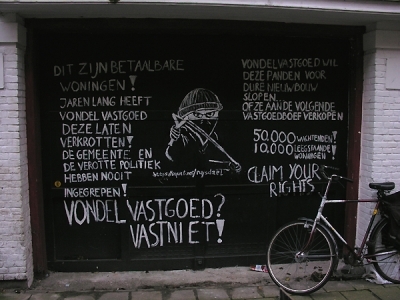 DIT ZIJN BETAALBARE
WONINGEN!
JAREN LANG HEEFT
VONDEL VASTGOED
DEZE LATEN
VERKROTTEN!
DE GEMEENTE EN
DE VEROTTE POLITIEK
HEBBEN NOOIT
INGEGREPEN!
VONDEL VASTGOED?
VASTNIET!
VONDEL VASTGOED WIL
DEZE PANDEN VOOR
DURE NIEUWBOUW
SLOPEN.
OF ZE AAN DE VOLGENDE
VASTGOEDBOEF VERKOPEN
50.000 WACHTENDEN!
10.000 LEEGSTAANDE
WONINGEN!
CLAIM YOUR
RIGHTS